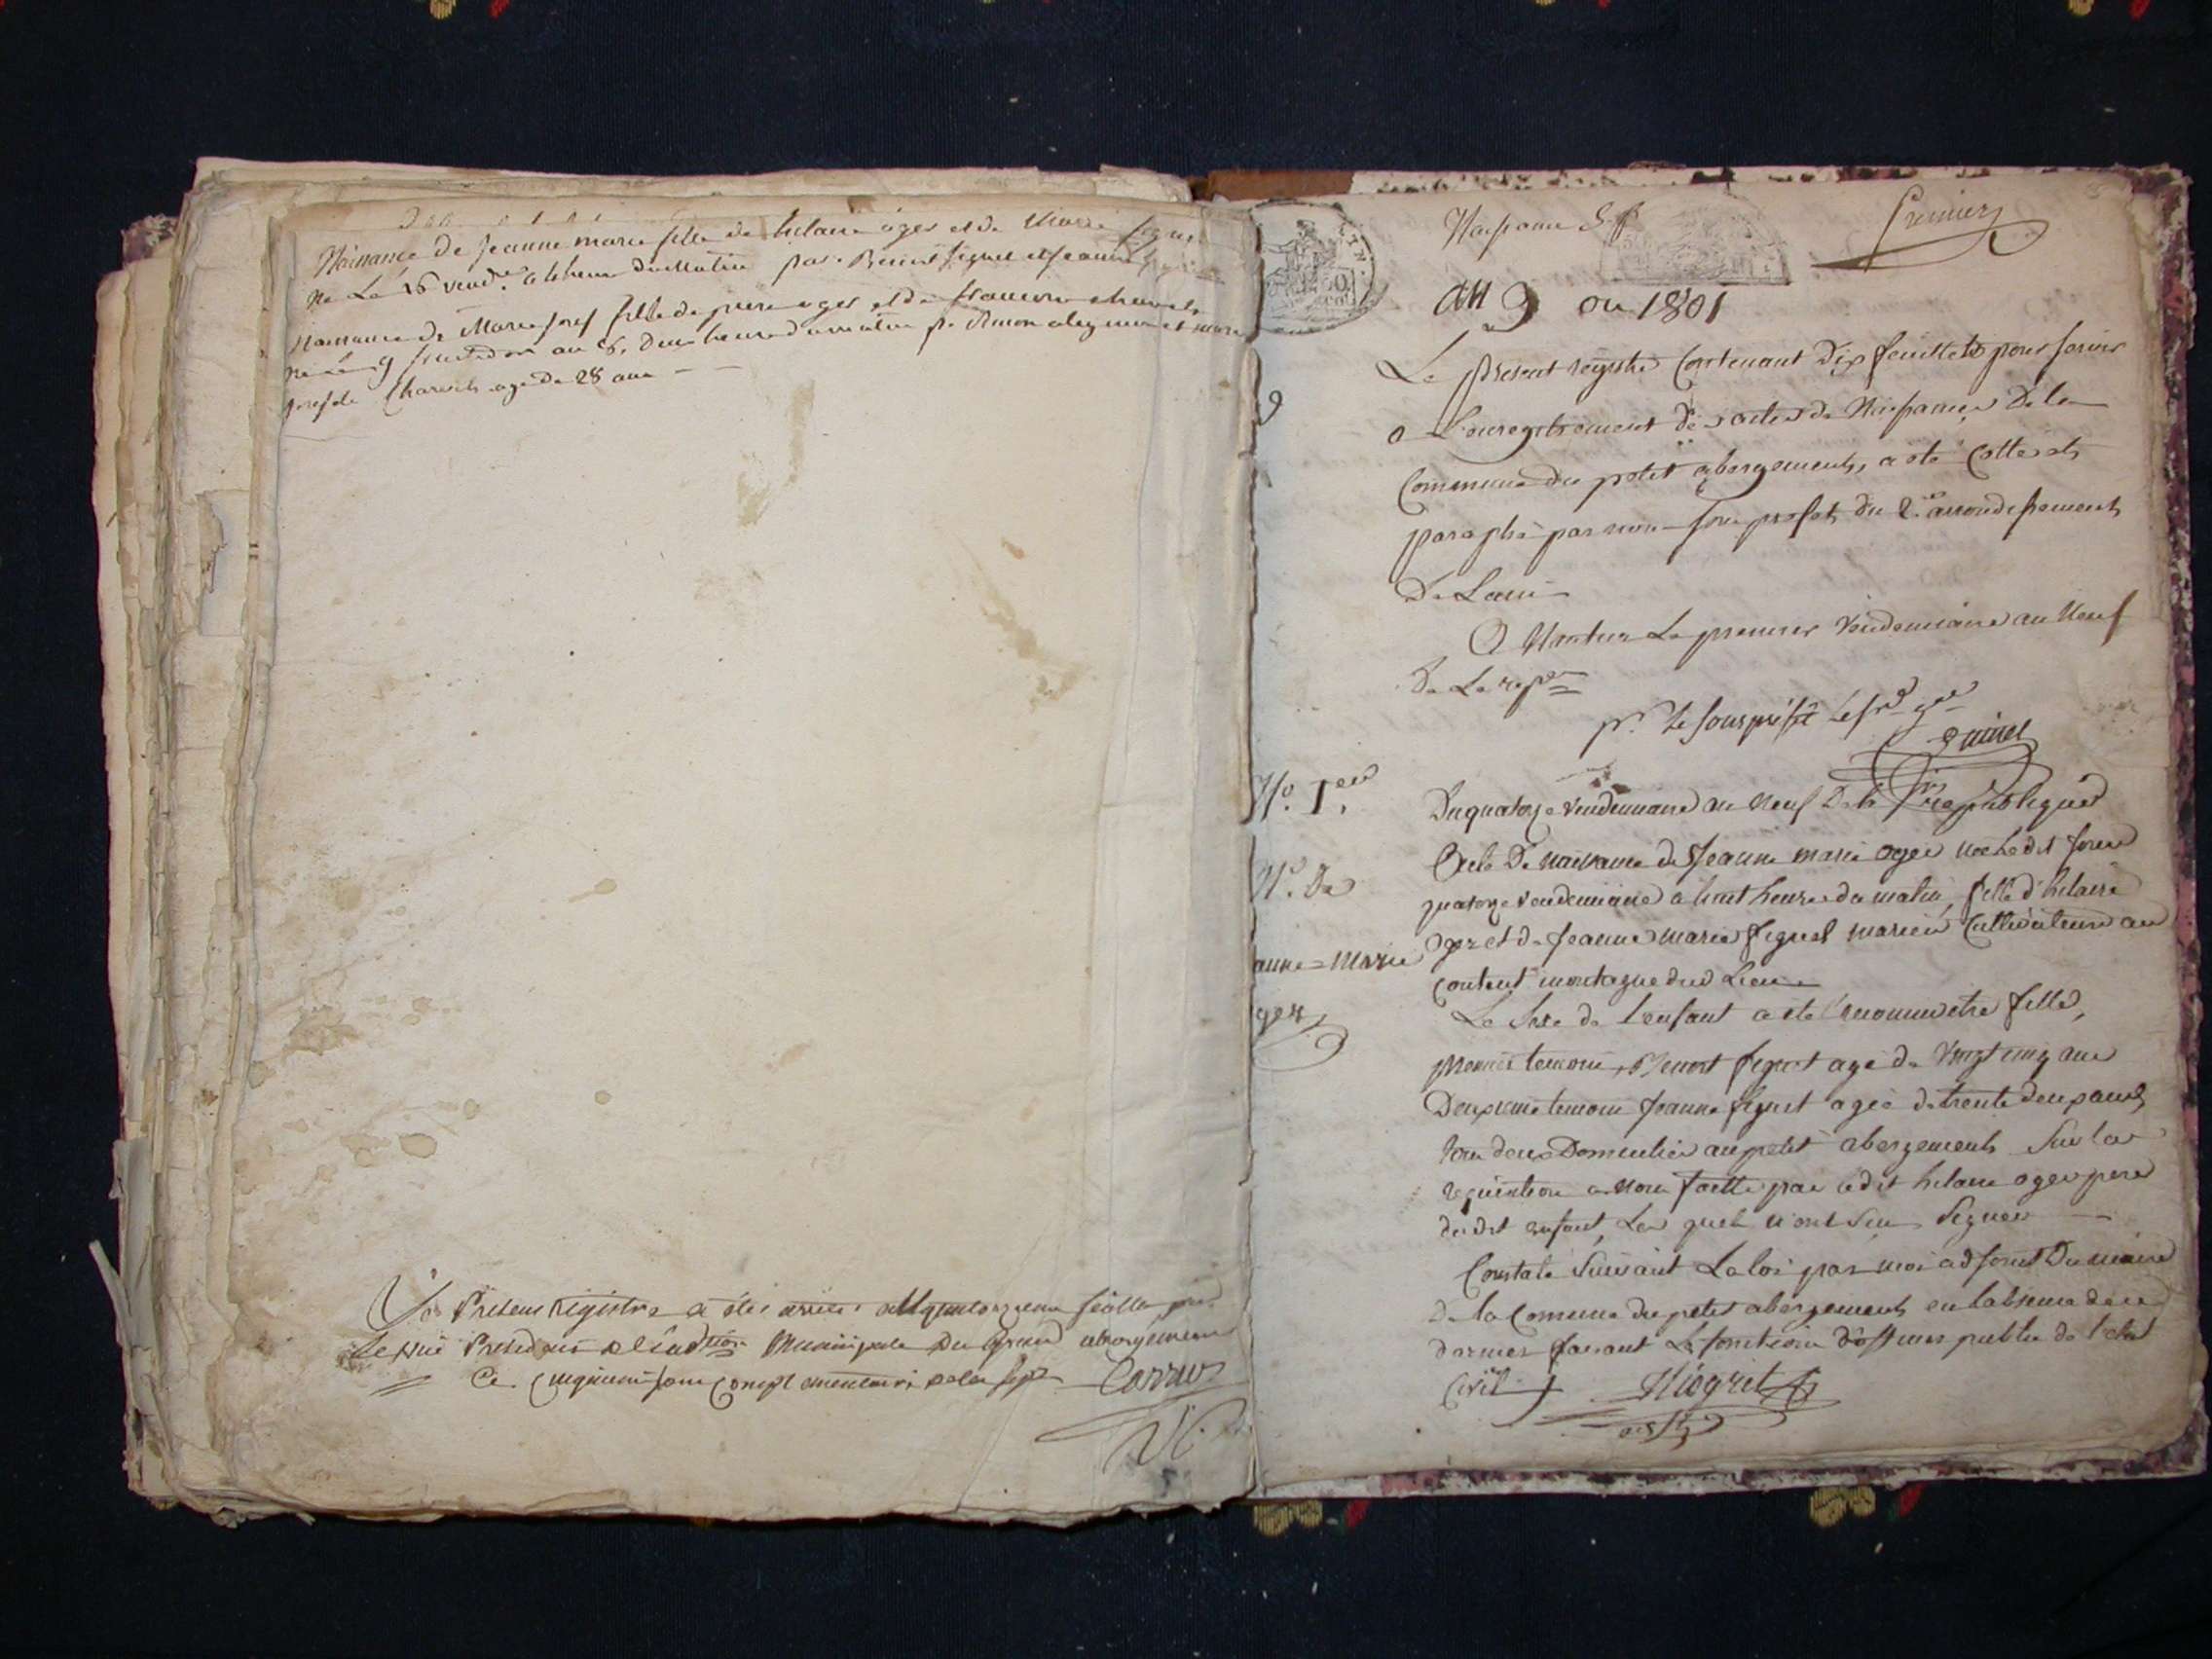 Naissance de Jeanne marie fille de hilaire oger et de Marie figuet
né Le 16 vend.re a 6 heure du Matin par Benoit figuet et Jeanne
naissance de Marie Josef fille de pierre oger et de francoise
né Le 9 fructidor an 8, deux heure du matin
age de 28 ans
Le Présent Registre a été
Municipale du Grand abergement
Ce cinquieme jour complementaire
Naissance
Premier
an 9 ou 1801
Le present registre Contenant Dix feuillets pour servir
a L'enregistrement des actes de Naissances De la
Commune du petit abergement, a été Cotté et
paraphé par nous sous prefet du 2.e arrondissement
De Lain
A Nantua Le premier Vendemiaire an Neuf
De La rep.
p.r le souspréfet
N.o 1.er
Du quatorze vendemiaire an Neuf De la republique
N.o De
Acte De naissance de Jeanne marie oger née Le dit jour
quatorze vendemiaire a huit heures du matin, fille d'hilaire
anne = Marie
oger et de Jeanne marie figuet mariés Cultivateurs au
content montagne dud Lieu
ger
Le Sexe de l'enfant a eté reconnu etre fille,
premier temoin, Benoit figuet agé de vingt cinq ans
Deuxieme temoin Jeanne figuet agée de trente deux ans,
tous deux Domiciliés au petit abergement Sur la
requisition a nous faitte par ledit hilaire oger pere
du dit enfant, Les quels n'ont Su Signer
Constaté Suivant La loi par moi adjoint Du maire
De la Commune du petit abergement en labsence de ce
dernier faisant Les fonctions d'officier public de l'etat
Civil